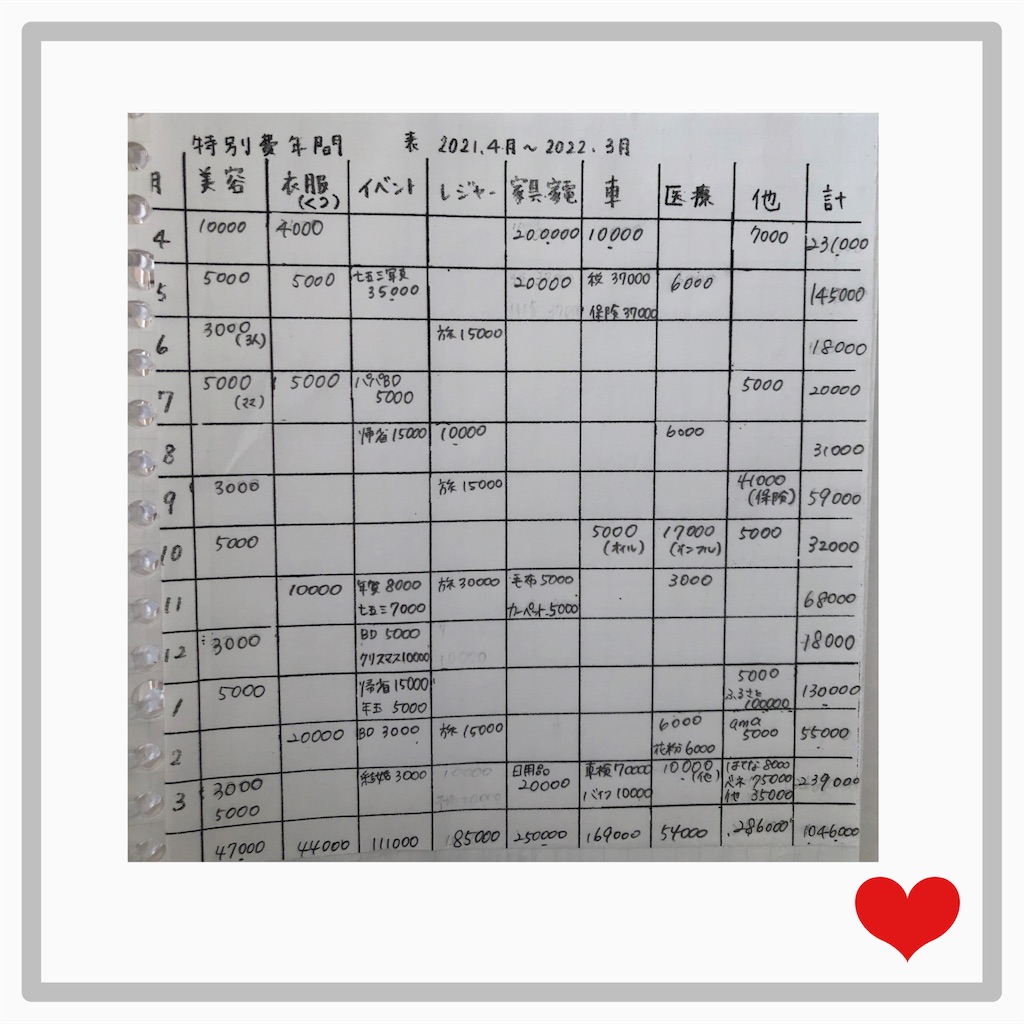 特別費年間 表 2021.4月〜2022.3月
月 美容 衣服(くつ) イベント レジャー 家具・家電 車 医療 他 計
4 10000 4000 200000 10000 7000 231000
5 5000 5000 七五三写真 35000 20000 税 37000 保険 37000 6000 145000
6 3000(3人) 旅 15000 18000
7 5000(ママ) 5000 パパBD 5000 5000 20000
8 帰省 15000 10000 6000 31000
9 3000 旅 15000 41000(保険) 59000
10 5000 5000(オイル) 17000(インフル) 5000 32000
11 10000 年賀 8000 七五三 7000 旅 30000 毛布 5000 カーペット 5000 3000 68000
12 3000 BD 5000 クリスマス 10000 18000
1 5000 帰省 15000 年玉 5000 5000 ふるさと 100000 130000
2 20000 BD 3000 旅 15000 6000 花粉 6000 ama 5000 55000
3 3000 5000 結婚 3000 日用品 20000 車検 70000 バイク 10000 10000(他) はてな 8000 ベネ 75000 他 35000 239000
47000 44000 111000 85000 250000 169000 54000 286000 1046000